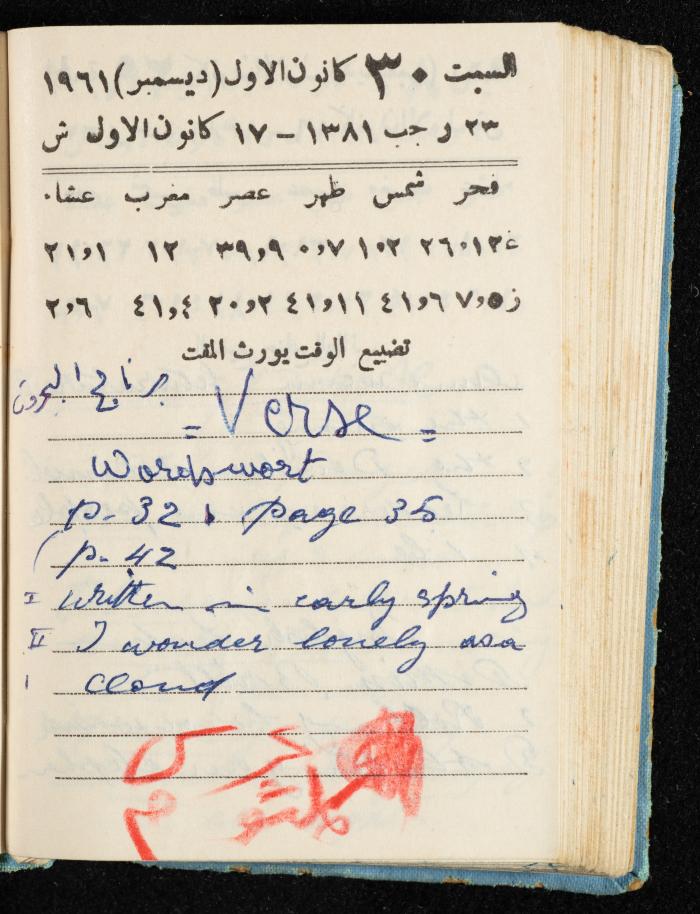 السبت ٣٠ كانون الاول (ديسمبر) ١٩٦١
٢٣ رجب ١٣٨١ – ١٧ كانون الاول ش
فجر شمس ظهر عصر مغرب عشاء
غ ١٢،٢٦ ١،٠٢ ٧،٠ ٩،٣٩ ١٢ ١،٢١
ز ٥،٠٧ ٦،٤١ ١١،٤١ ٢،٢٠ ٤،٤١ ٦،٢
تضييع الوقت يورث المقت
برنامج
= Verse =
Wordswort
p. 32, page 35
(p. 42
I written in early spring
II I wonder lonely as a
cloud